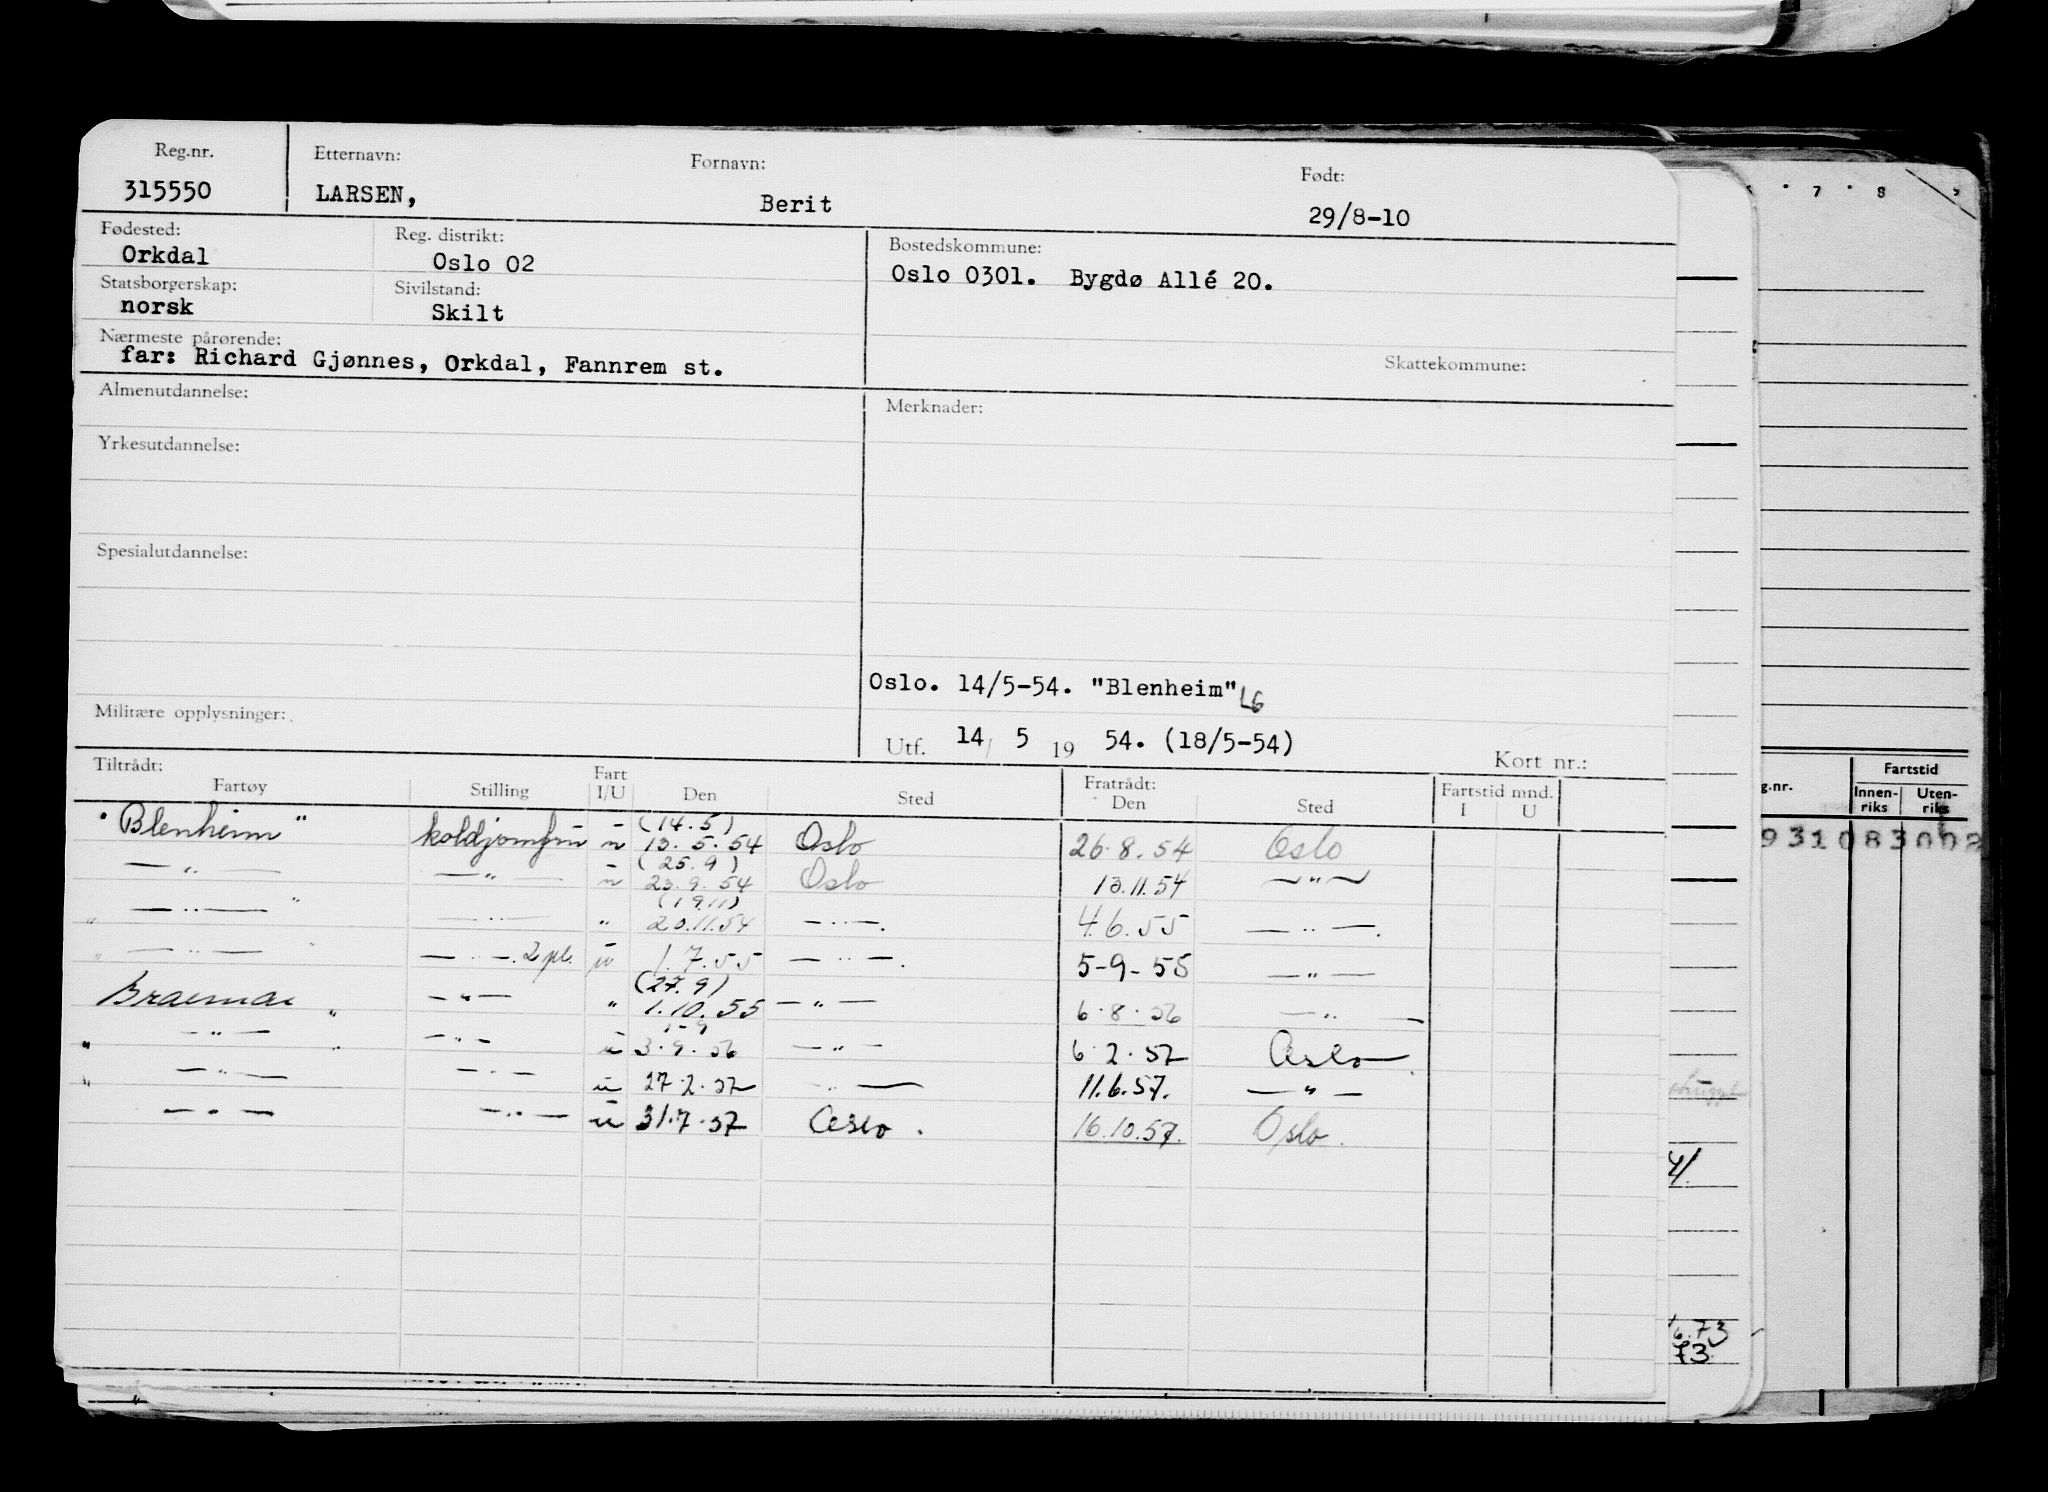 Reg.nr. Etternavn: Fornavn: Født:
315550 LARSEN, Berit 29/8-10
Fødested: Reg. distrikt: Bostedskommune:
Orkdal Oslo 02 Oslo 0301. Bygdø Allé 20.
Statsborgerskap: Sivilstand:
norsk Skilt
Nærmeste pårørende: Skattekommune:
far: Richard Gjønnes, Orkdal, Fannrem st.
Almenutdannelse: Merknader:
Yrkesutdannelse:
Spesialutdannelse:
Oslo. 14/5-54. "Blenheim" LG
Militære opplysninger:
Utf. 14/ 5 19 54. (18/5-54) Kort nr.:
Tiltrådt: Fart Fratrådt: Fartstid mnd.
Fartøy Stilling I/U Den Sted Den Sted I U
(14.5)
"Blenheim" koldjomfru u 13.5.54 Oslo 26.8.54 Oslo
(25.9)
— " — — " — u 23.9.54 Oslo 13.11.54 — " —
(19.11)
" — " — " — " — " 20.11.54 — " —. 4.6.55 — " —.
" — " — " — " —. 2 pl. u 1.7.55 — " —. 5-9-55 — " —
(27.9)
Braemar " — " — " 1.10.55 — " — 6.8.56 — " —
1-9
" — " — " — " — u 3.9.56 — " — 6.2.57 Oslo
" — " — — " — u 27.2.57 " — 11.6.57. — " —
— " — — " — u 31.7.57 Oslo. 16.10.57. Oslo.
7 8
Fartstid
g.nr. Innen-riks Uten-riks
931083002
4/
6.73
73